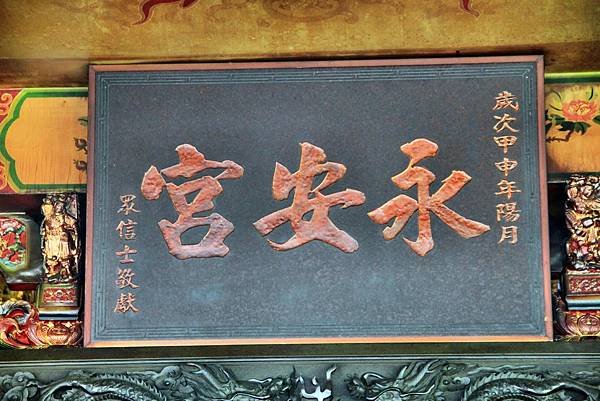 歲次甲申年陽月
永安宮
眾信士敬獻